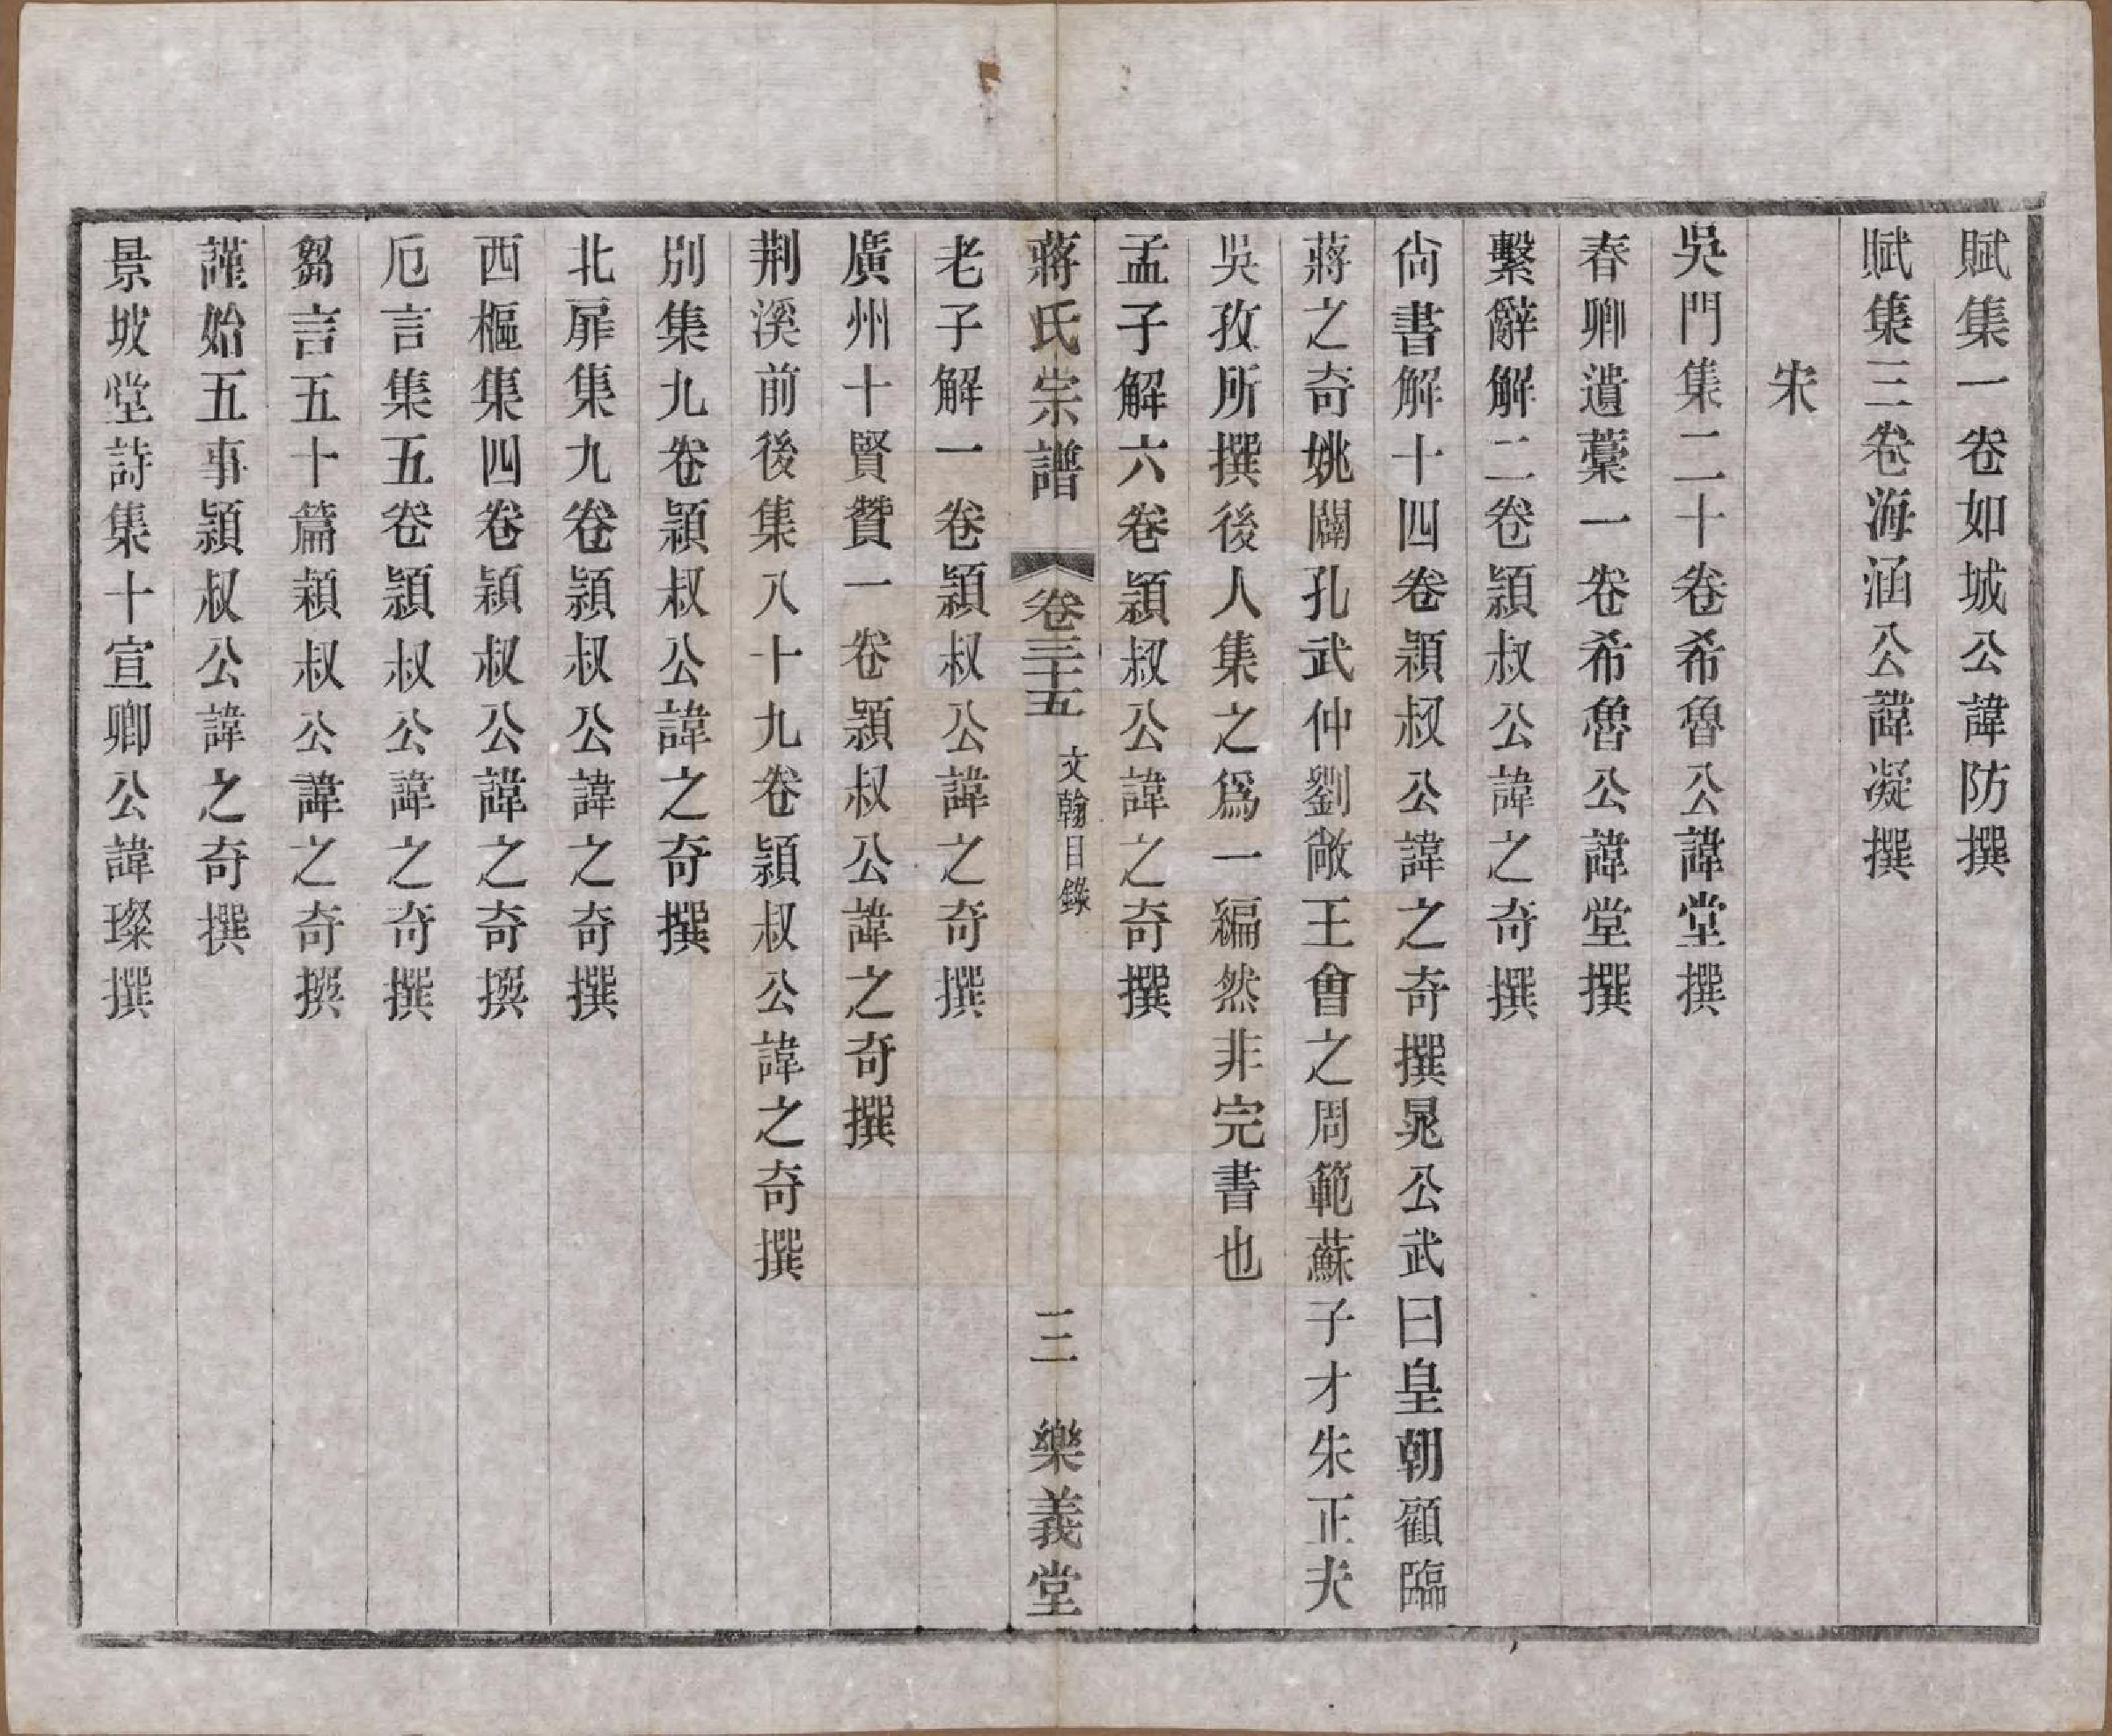 賦集一卷如城公諱防撰
賦集三卷海涵公諱凝撰
宋
吳門集二十卷希魯公諱堂撰
春卿遺藁一卷希魯公諱堂撰
繫辭解二卷潁叔公諱之奇撰
尙書解十四卷潁叔公諱之奇撰晁公武曰皇朝顧臨
蔣之奇姚闢孔武仲劉敞王會之周範蘇子才朱正夫
吳孜所撰後人集之爲一編然非完書也
孟子解六卷潁叔公諱之奇撰
蔣氏宗譜 卷三十五 文翰目錄 三 樂義堂
老子解一卷潁叔公諱之奇撰
廣州十賢贊一卷潁叔公諱之奇撰
荆溪前後集八十九卷潁叔公諱之奇撰
別集九卷潁叔公諱之奇撰
北扉集九卷潁叔公諱之奇撰
西樞集四卷潁叔公諱之奇撰
卮言集五卷潁叔公諱之奇撰
芻言五十篇潁叔公諱之奇撰
謹始五事潁叔公諱之奇撰
景坡堂詩集十宣卿公諱璨撰